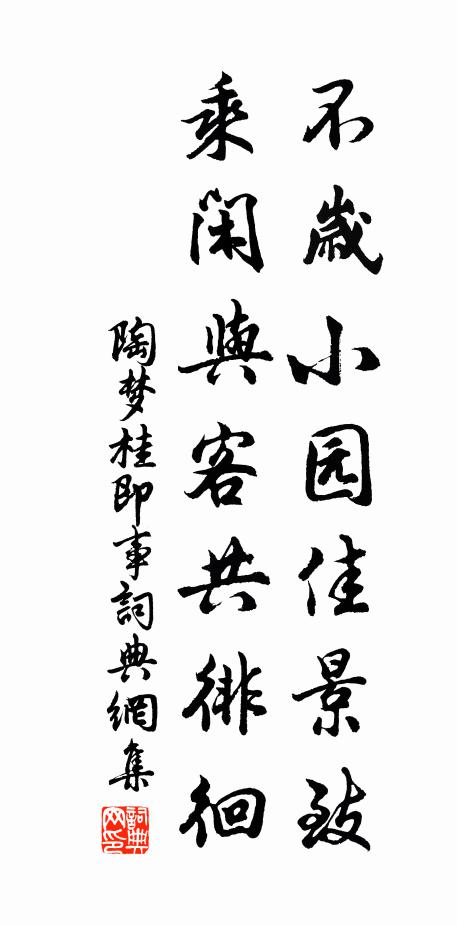 不歲小园佳景致
乘闲與客共徘徊
陶梦桂即事詞典網集
詞典网印